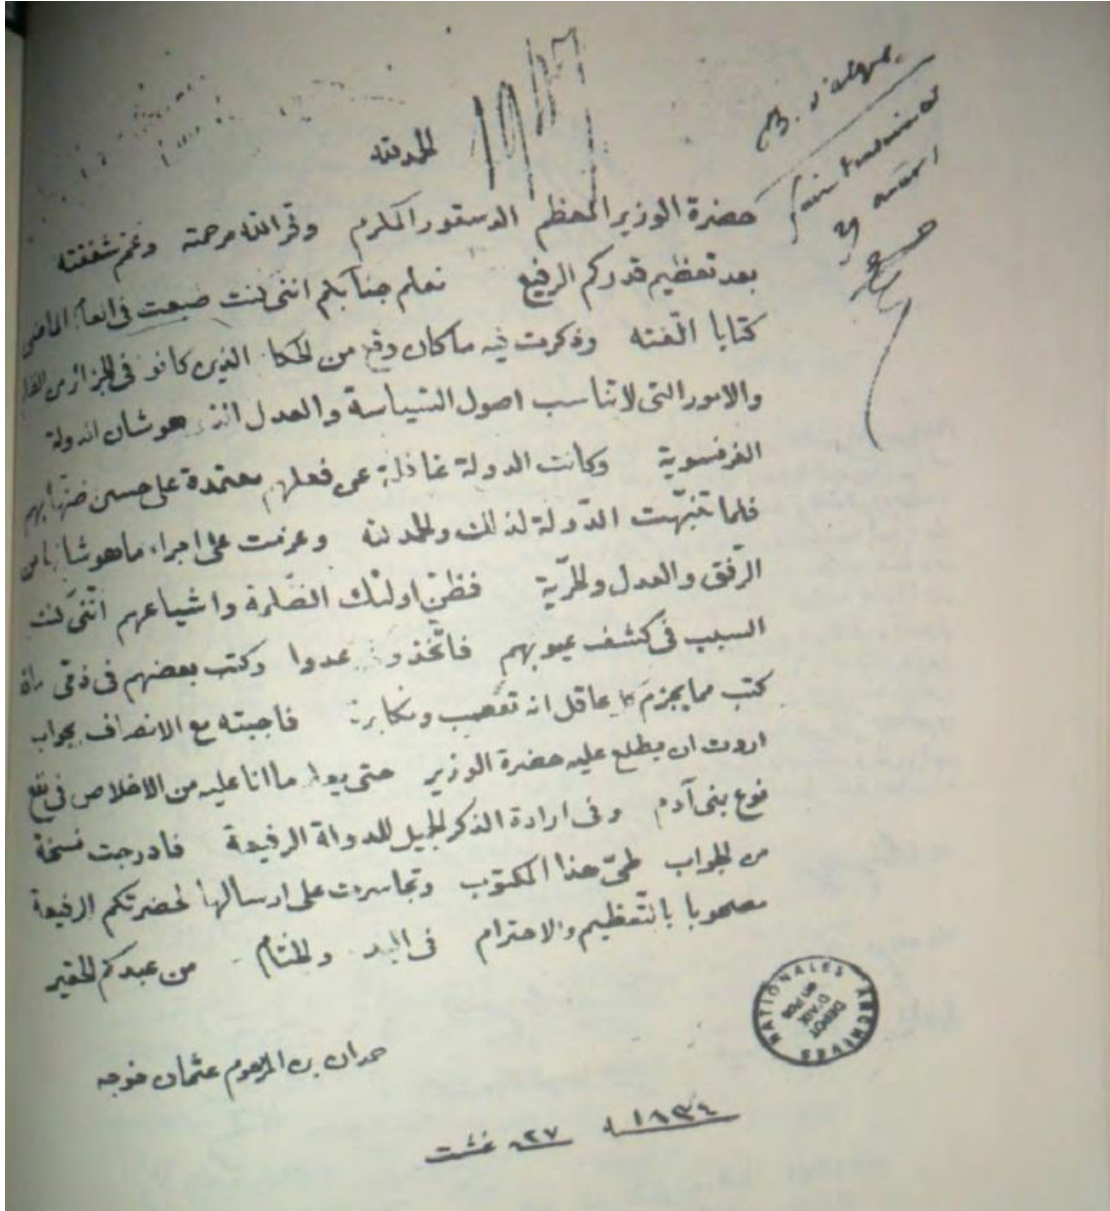 الحمد لله
حضرة الوزير المعظم الدستور المكرم وفر الله مرحمته وعم شفقته
بعد تعظيم قدركم الرفيع نعلم جنابكم اننى كنت صبعت فى العام الماضى
كتابا الّفته وذكرت فيه ما كان وقع من الحكام الذين كانو فى الجزائر من
والامور التى لا تناسب اصول السّياسة والعدل الذى هو شان الدولة
الفرنسوية وكانت الدولة غافلة عن فعلهم معتمدة على حسن
فلما تنبّهت الدّولة لذلك والحمد لله وعزمت على اجراء ما هو شانها من
الرّفق والعدل والحرّية فظنّ اولئك الضّلمة واشياعهم انّنى كنت
السبب فى كشف عيوبهم فاتّخذونى عدوا وكتب بعضهم فى ذمّى
كتب مما يجزم كل عاقل انه تعصب ومكابرة فاجبته مع الانصاف بجواب
اردت ان يطلع عليه حضرة الوزير حتى ما انا عليه من الاخلاص فى نفع
نوع بنى آدم وفى ارادة الذكر الجميل للدولة الرفيعة فادرجت نسخة
من الجواب طىّ هذا المكتوب وتجاسرت على ارسالها لحضرتكم الرفيعة
مصحوبا بالتّعظيم والاحترام فى البدء والختام من عبدكم الحقير
حمدان بن المرحوم عثمان خوجه
٢٧ غشت ١٨٣٤
ARCHIVES NATIONALES
DEPOT
D'AIX